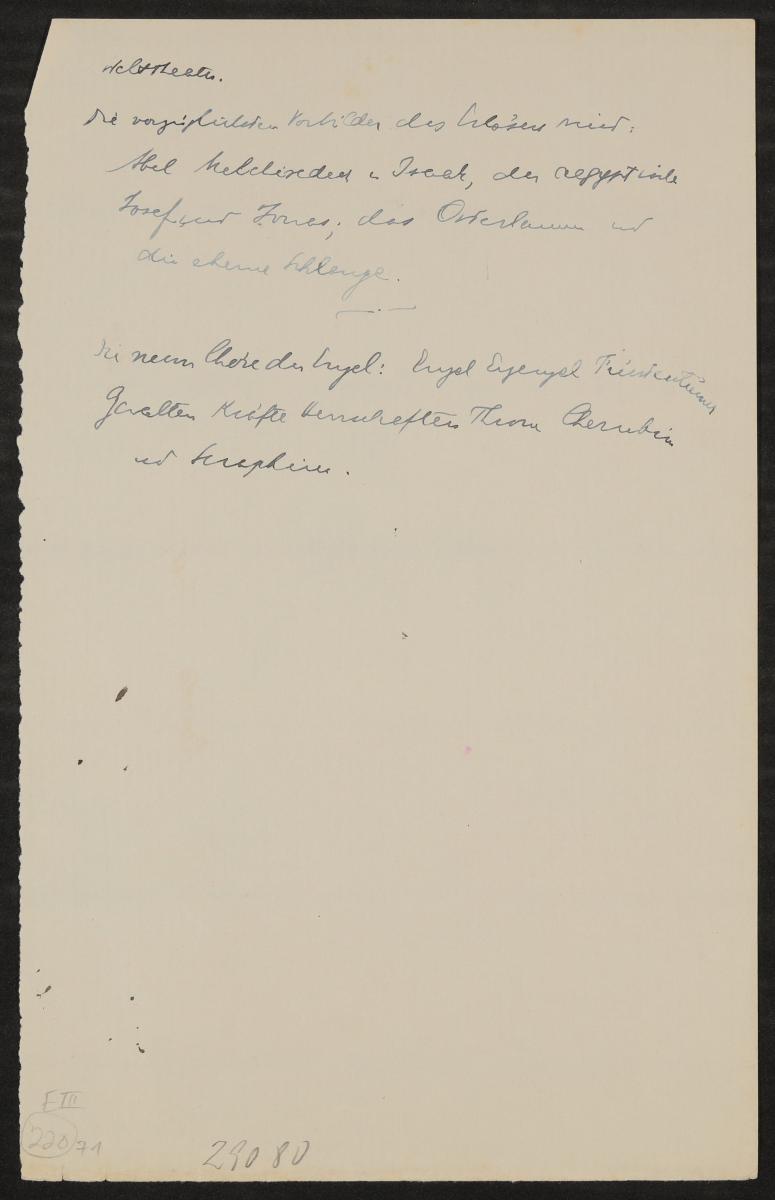 Welttheater.
Die vorzüglichsten Vorbilder des Erlösers sind:
Abel Melchisedek u Isaak, der aegyptische
Josef und Jonas; das Osterlamm und
die eherne Schlange.
Die neun Chöre der Engel: Engel Erzengel Fürstentümer
Gewalten Kräfte Herrschaften Throne Cherubim
und Seraphim.
E III
220 71
29080